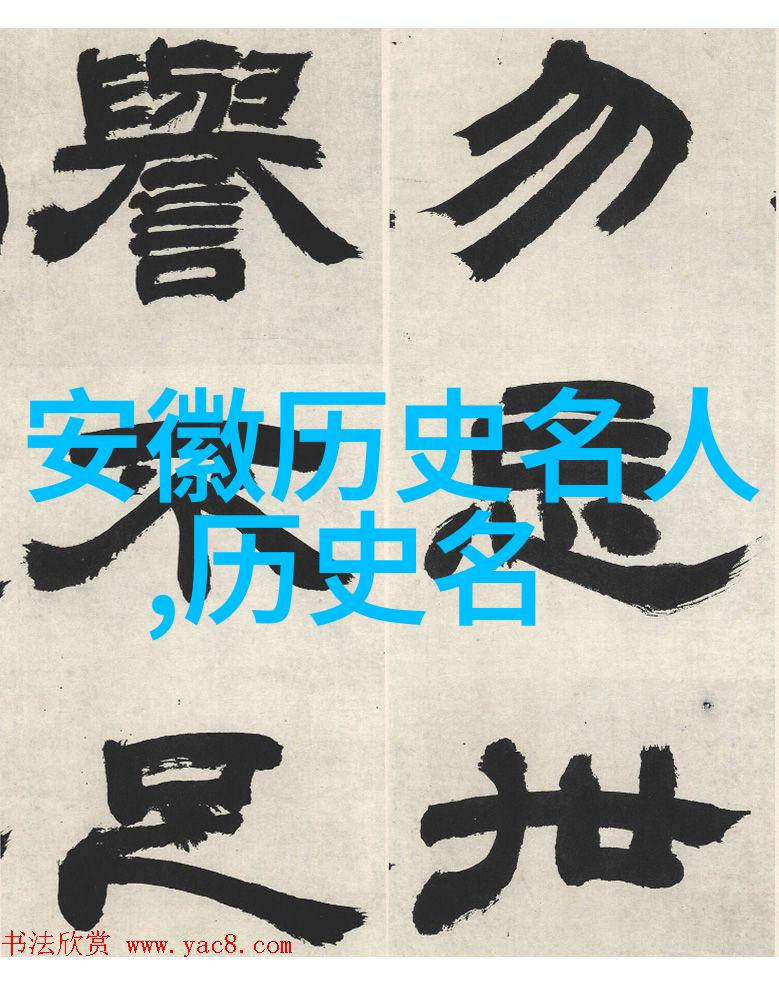 安徽历史名人
,历史名
勿世
譽不足
书法欣赏 www.yac8.com